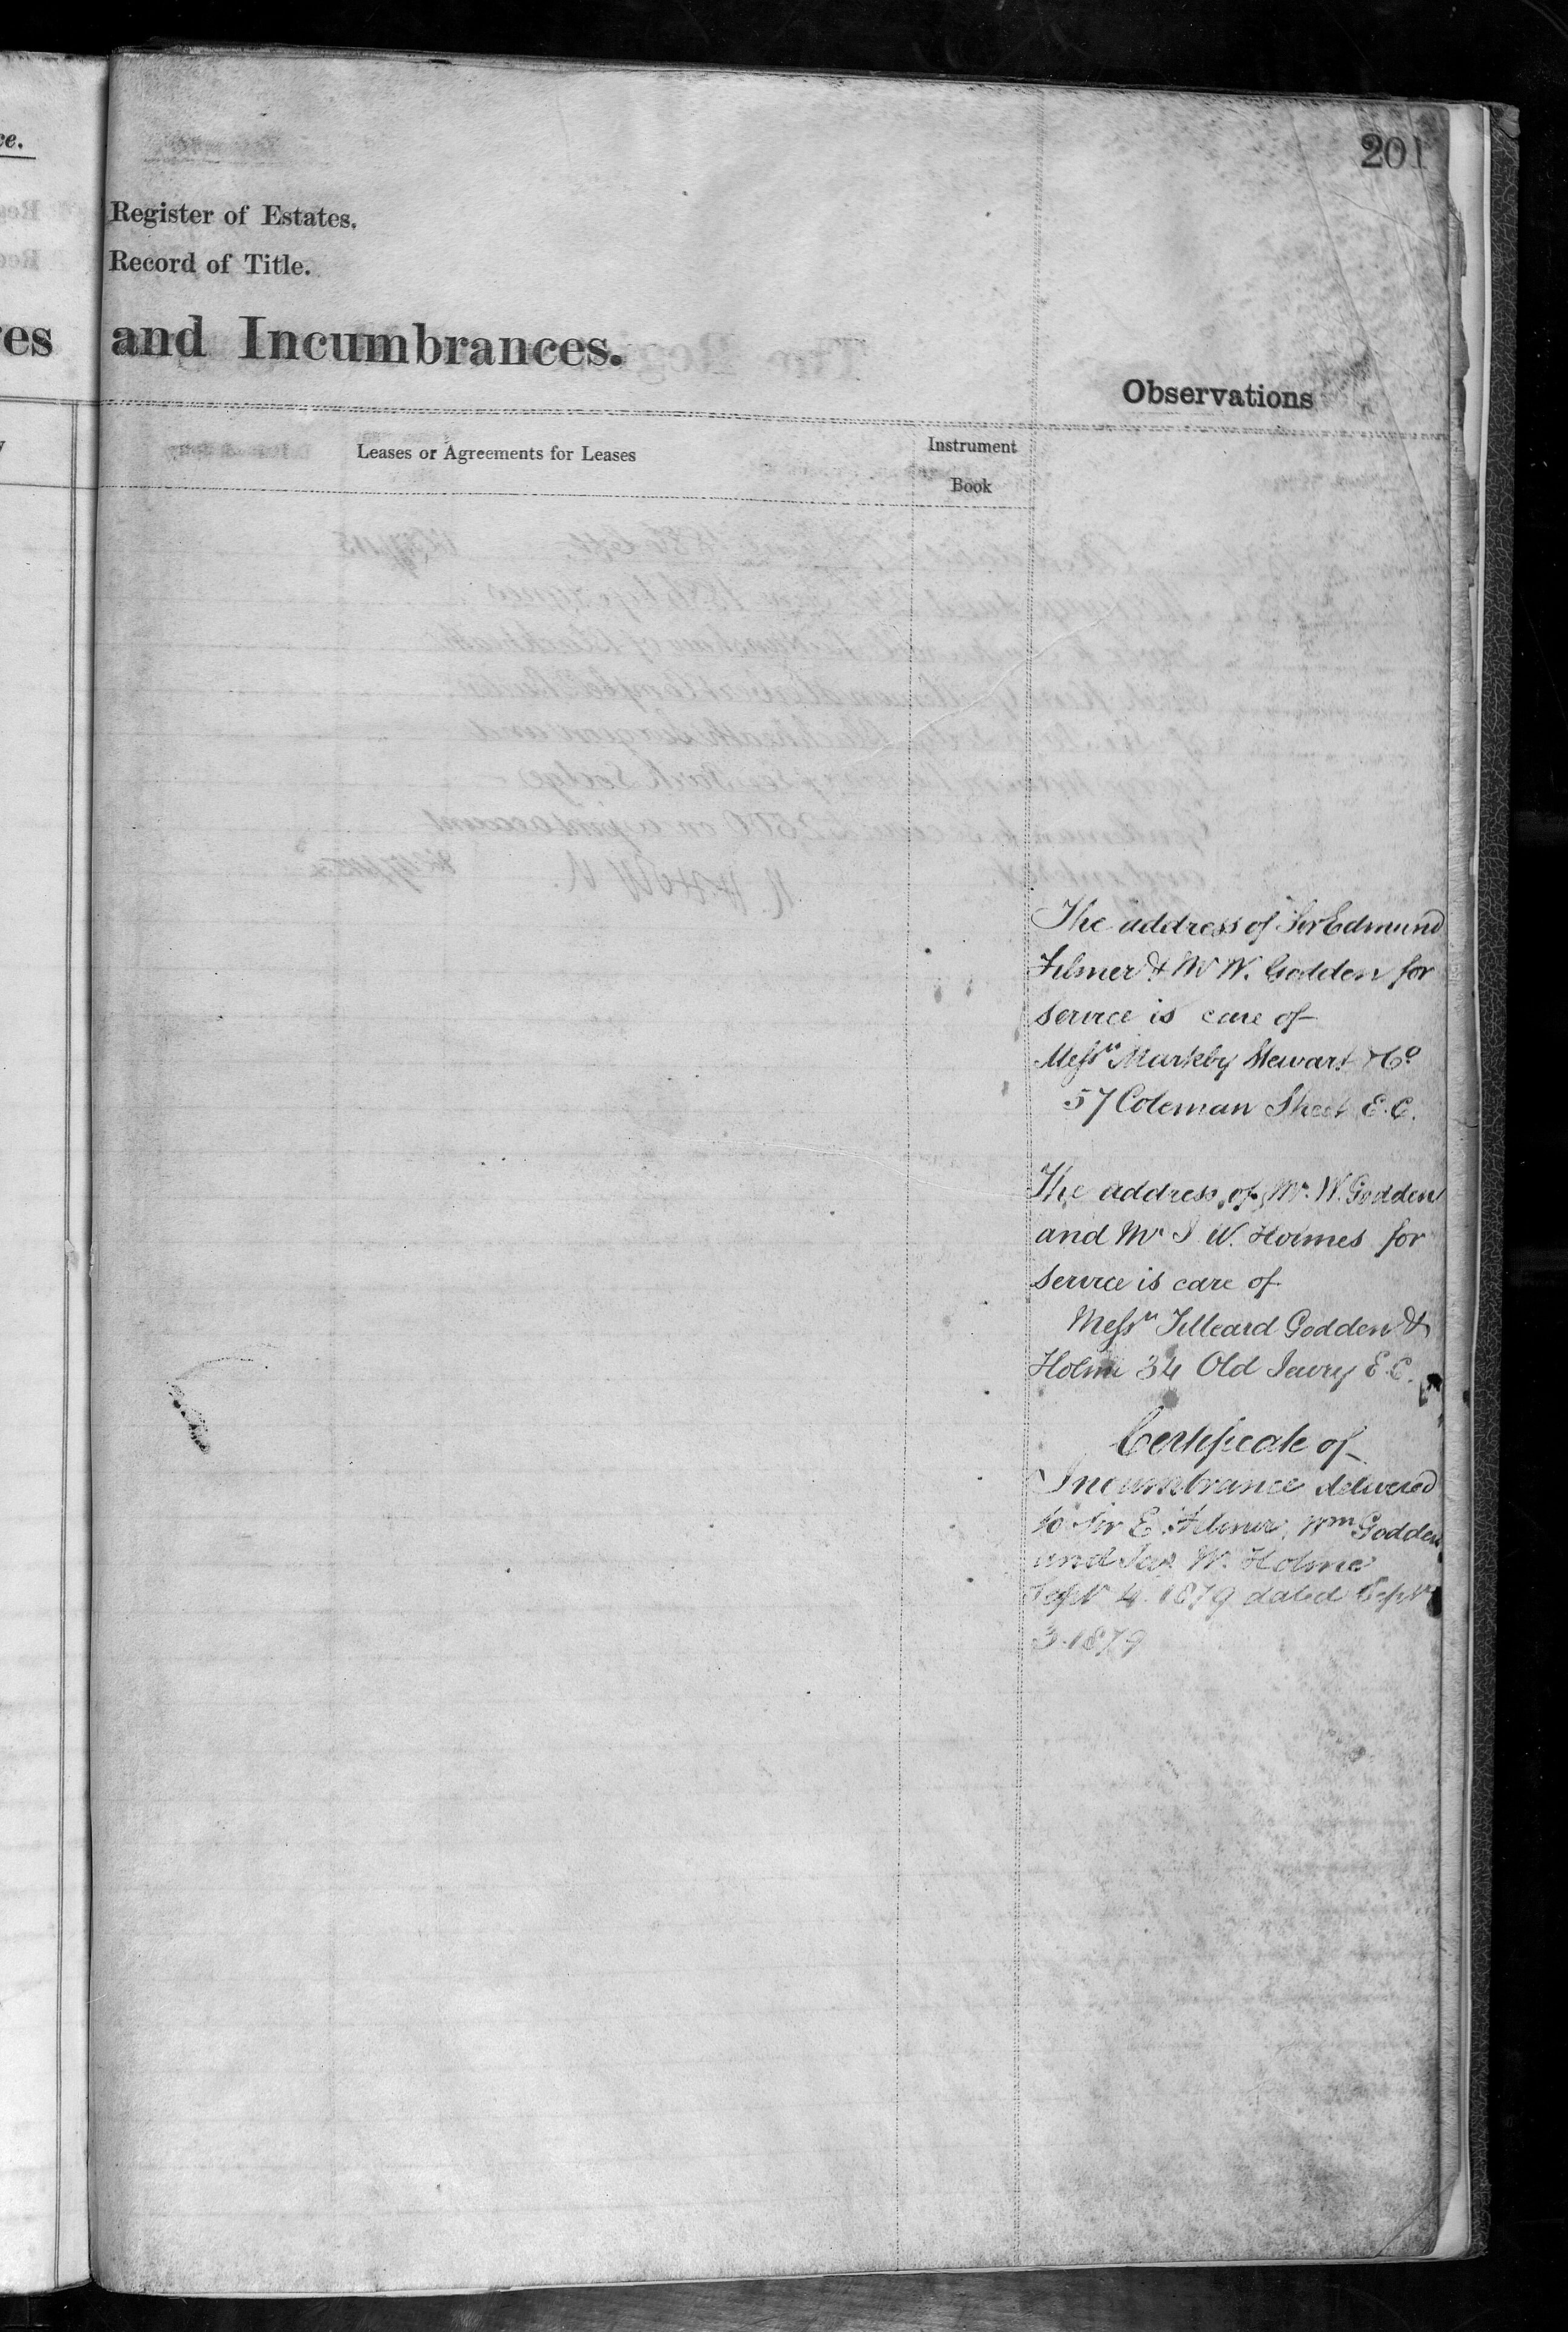 201
ce.
Register of Estates.
Record of Title.
es and Incumbrances.
Observations
Leases or Agreements for Leases
Instrument
Book
The address of Sir Edmund
Filmer & Mr W. Godden for
service is care of
Messrs Markby Stewart & Co
57 Coleman Street E.C.
The address of Mr. W. Godden
and Mr J W. Holmes for
service is care of
Messrs Tilleard Godden &
Holme 34 Old Jewry E.C.
Certificate of
Incumbrance delivered
to Sir E. Filmer, Wm Godden
and Jas W. Holme
Septr 4. 1879 dated Septr
3. 1879